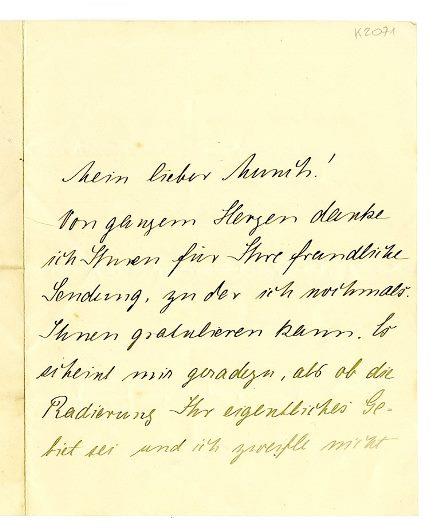 K2071
Mein lieber Munch!
Von ganzem Herzen danke
ich Ihnen für Ihre freundliche
Sendung, zu der ich nochmals
Ihnen gratulieren kann. Es
scheint mir geradezu, als ob die
Radierung Ihr eigentliches Ge-
biet sei und ich zweifle nicht